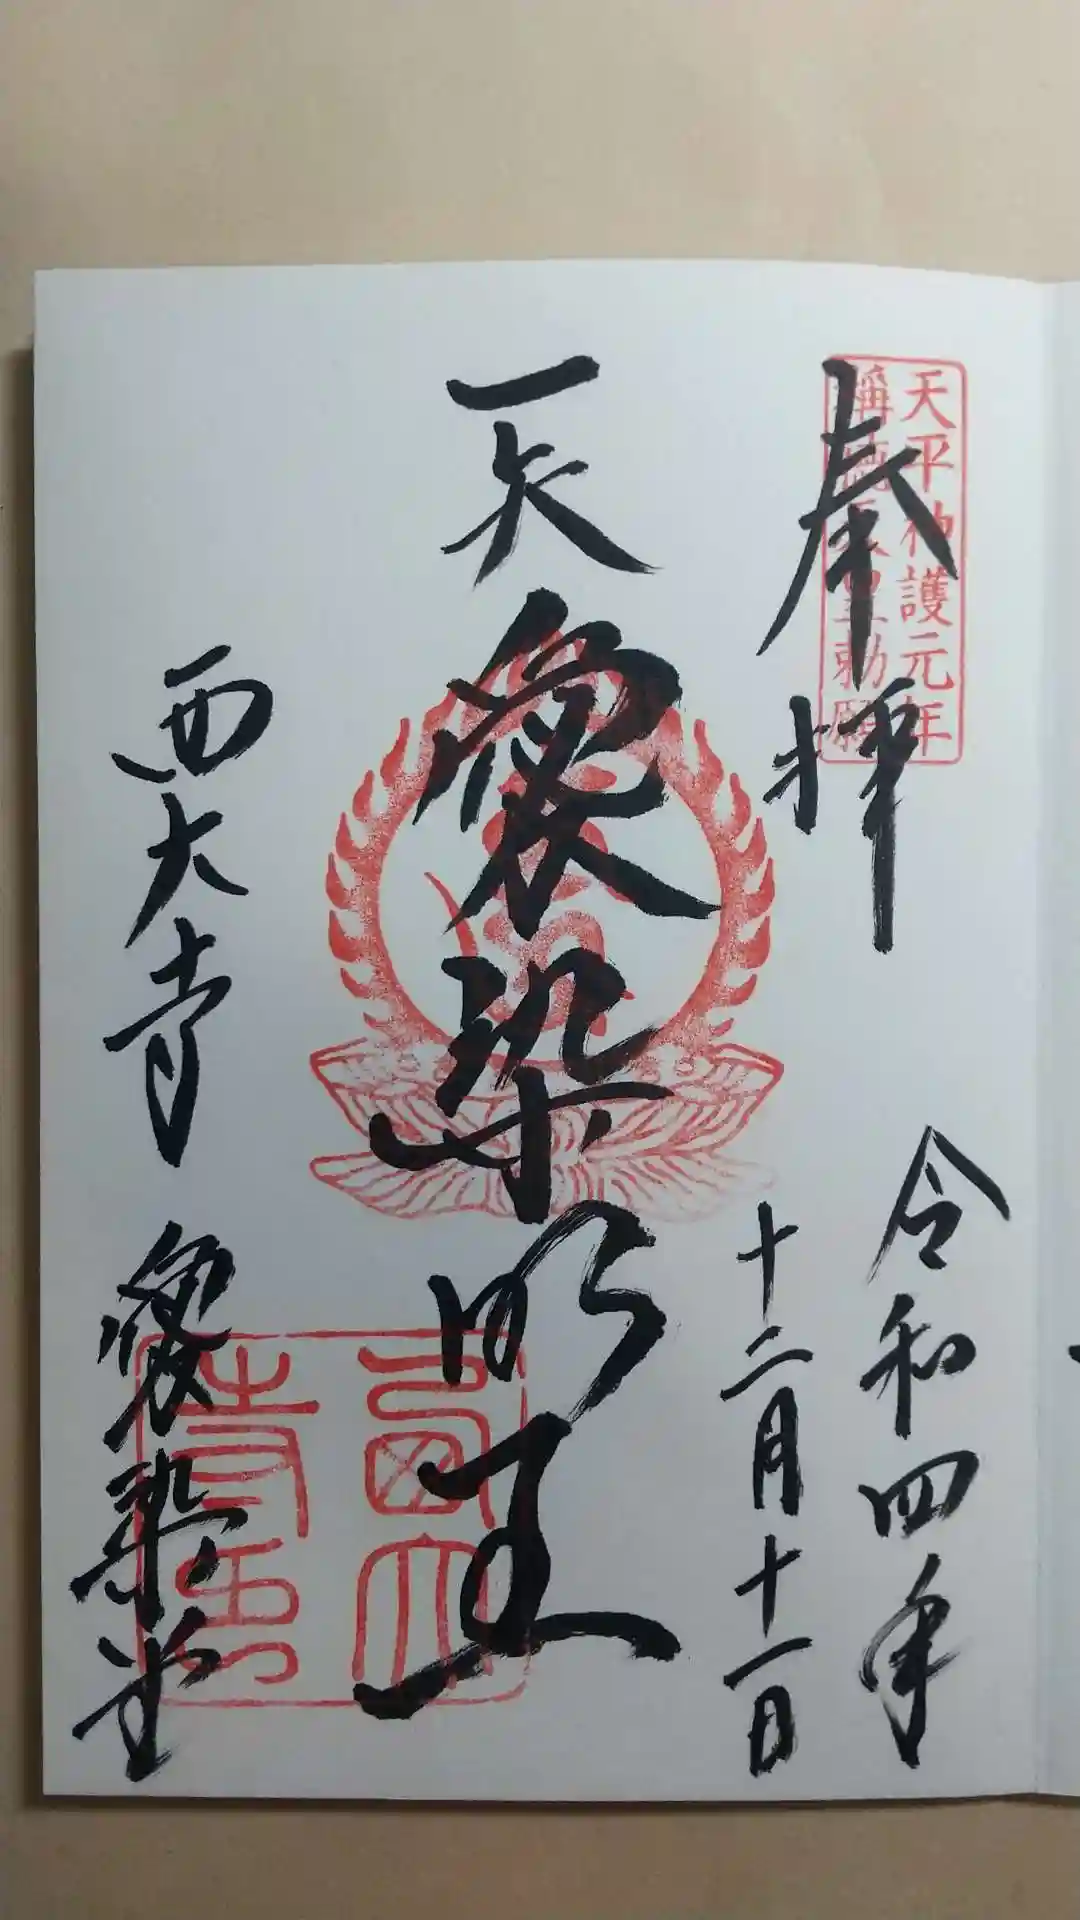 天平神護元年
稱德天皇勅願
奉拝
令和四年
十二月十一日
天愛染明王
西大寺
愛染堂